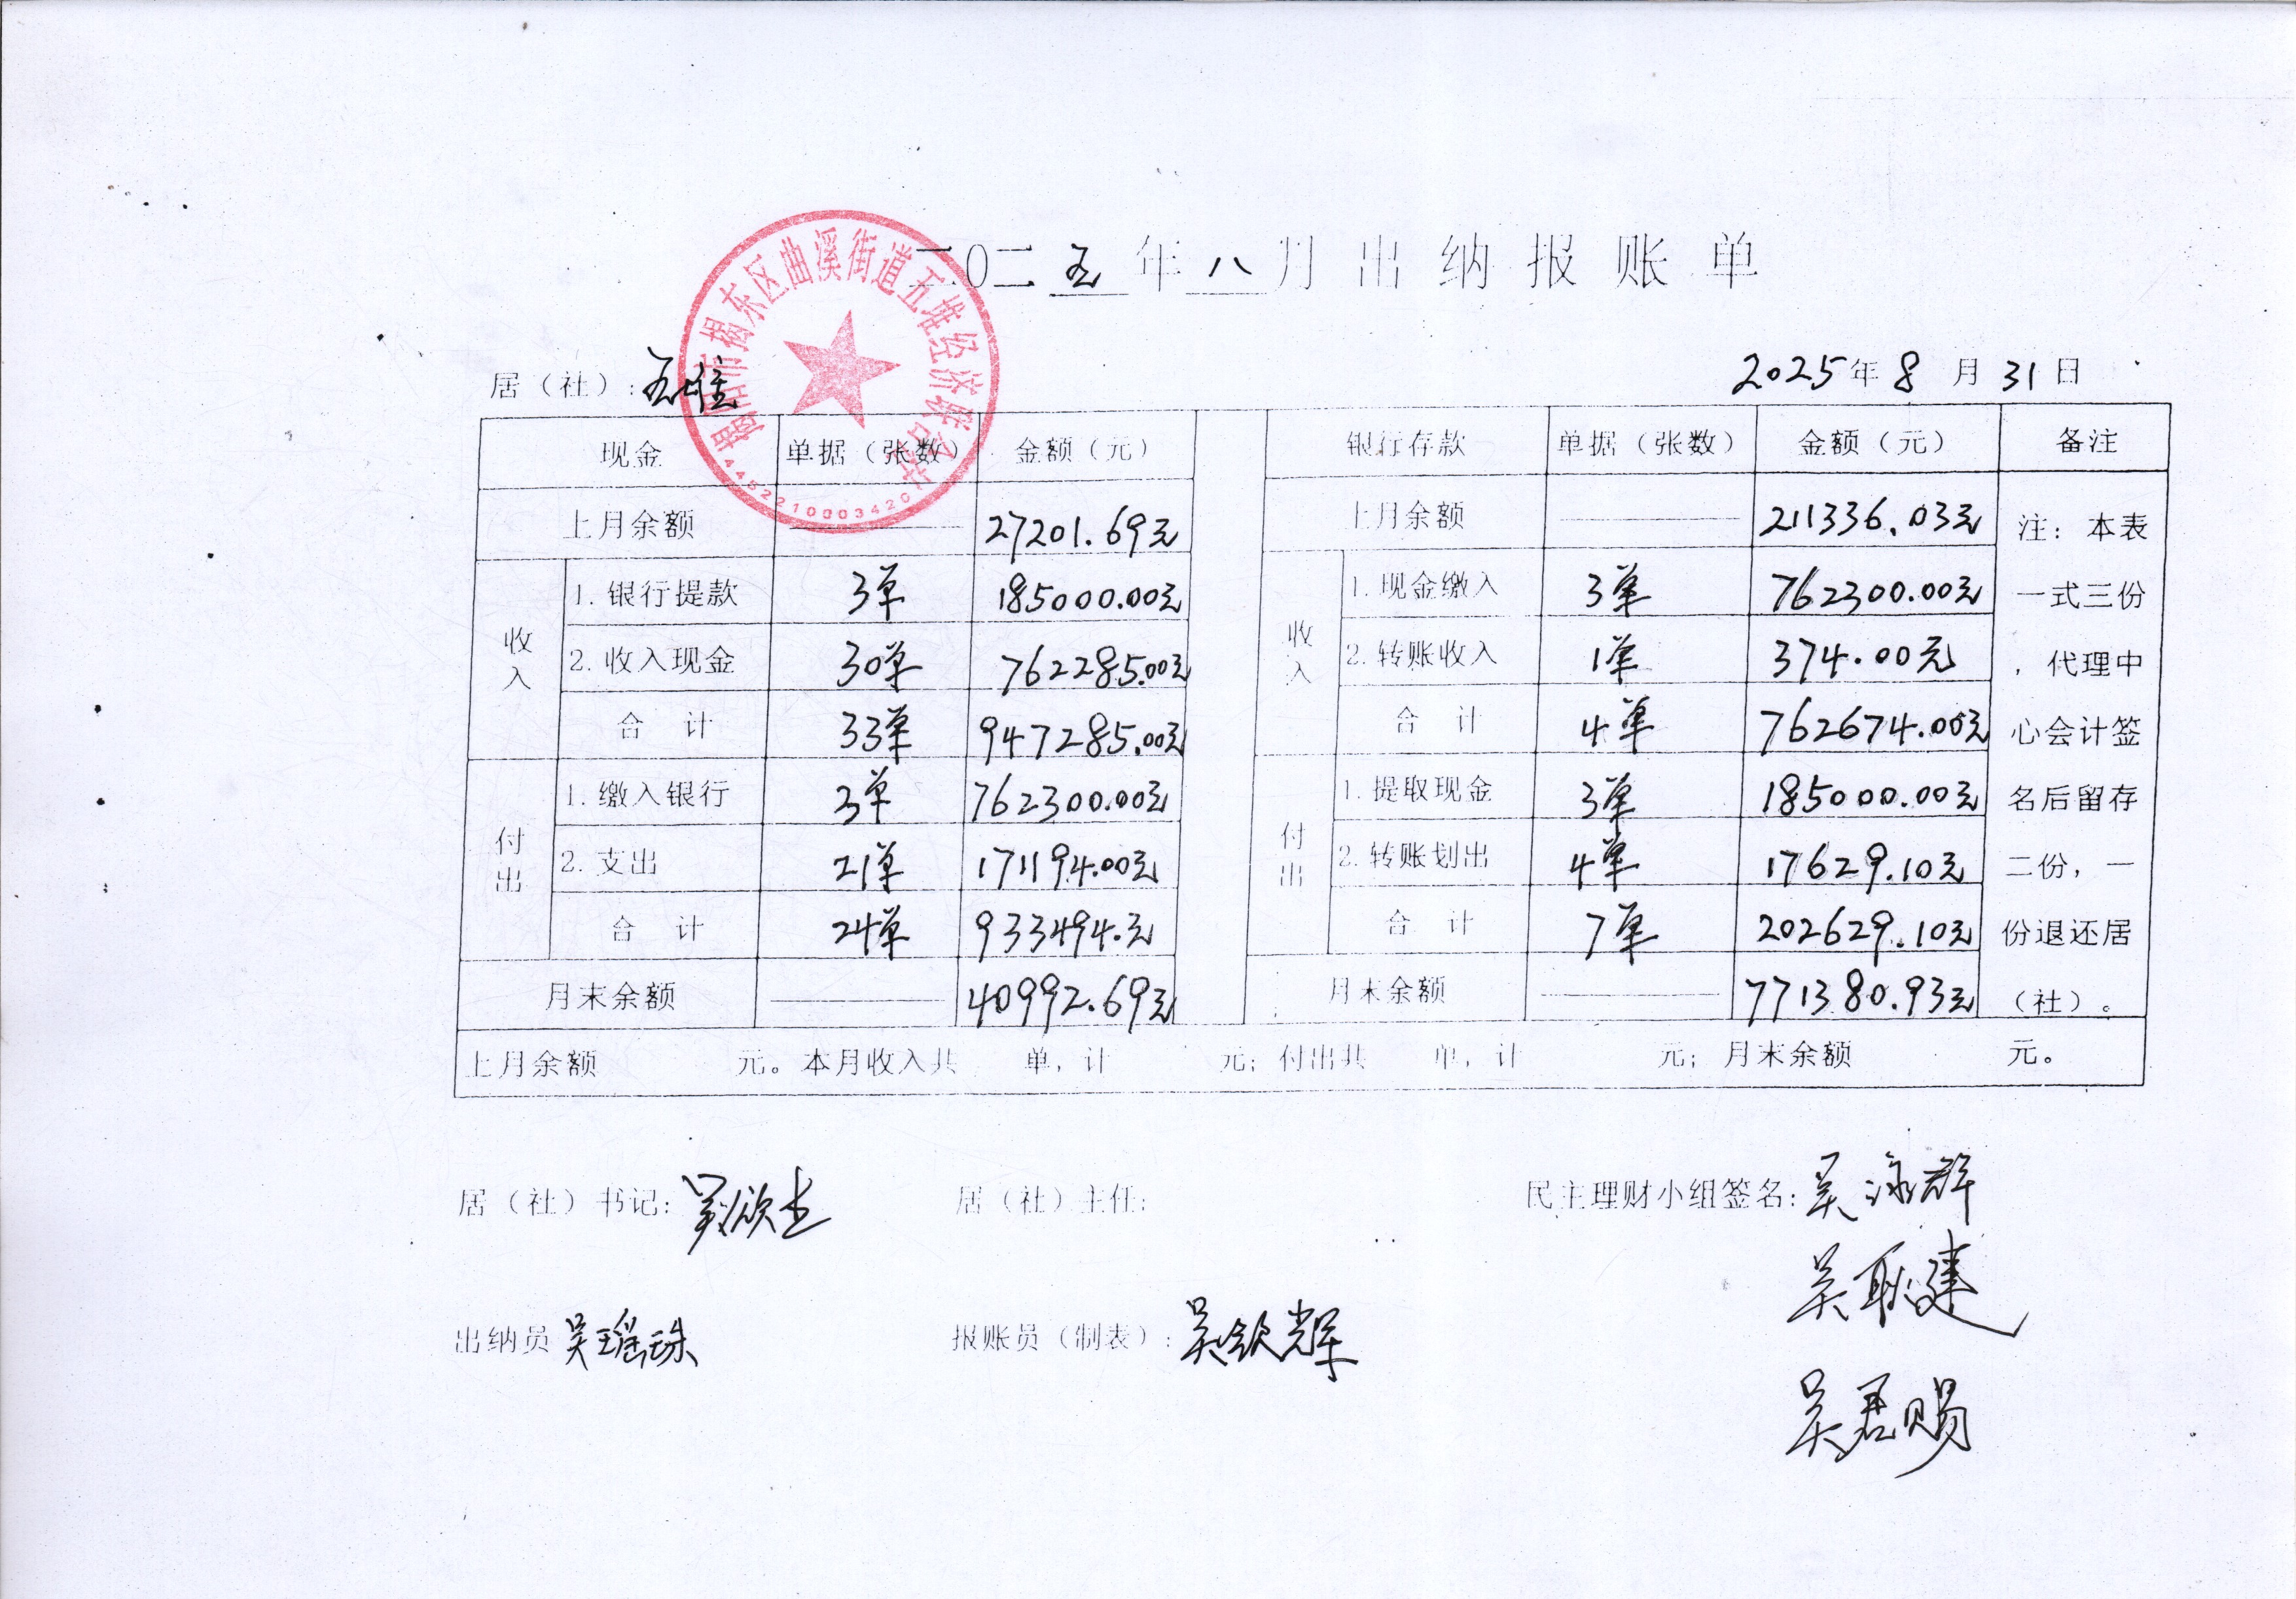 二0二五年八月出纳报账单
揭阳市揭东区曲溪街道五堆经济联合社
4452210003420
居（社）：五堆 2025年8月31日
现金 单据（张数） 金额（元） 银行存款 单据（张数） 金额（元） 备注
上月余额 27201.69元 上月余额 211336.03元
收入 1.银行提款 3单 185000.00元 收入 1.现金缴入 3单 762300.00元
2.收入现金 30单 762285.00元 2.转账收入 1单 374.00元
合计 33单 947285.00元 合计 4单 762674.00元
付出 1.缴入银行 3单 762300.00元 付出 1.提取现金 3单 185000.00元
2.支出 21单 171194.00元 2.转账划出 4单 17629.10元
合计 24单 933494.元 合计 7单 202629.10元
月末余额 40992.69元 月末余额 771380.93元
注：本表
一式三份
，代理中
心会计签
名后留存
二份，一
份退还居
（社）。
上月余额 元。本月收入共 单，计 元；付出共 单，计 元；月末余额 元。
居（社）书记： 居（社）主任： 民主理财小组签名：吴泳群
吴耿建
出纳员 吴瑶珠 报账员（制表）：吴钦辉
吴君赐